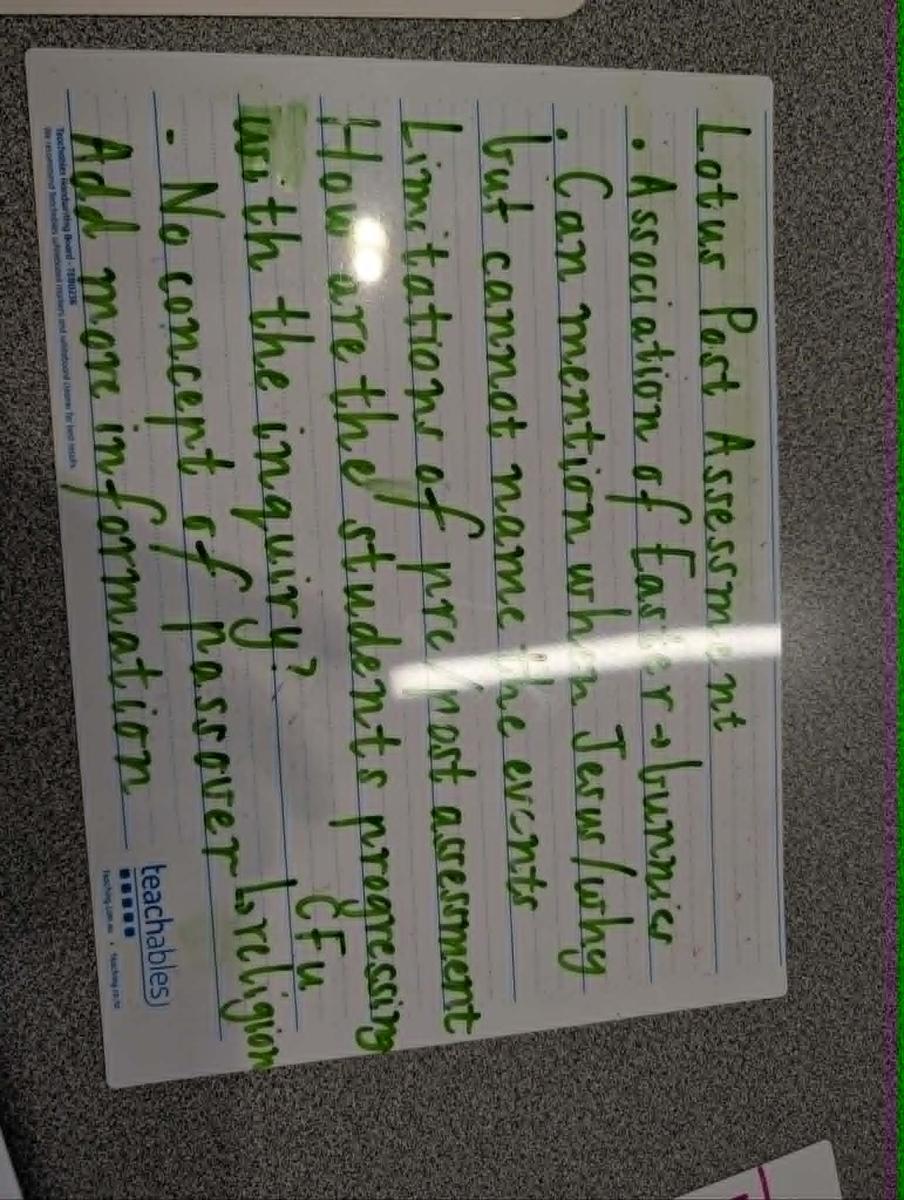 Lotus Post Assessment
• Association of Easter → bunnies
• Can mention when Jesus/why
but cannot name the events
Limitations of pre/post assessment
How are the students progressing
with the inquiry? CFU
• No concept of passover ↳ religion
Add more information
teachables
teaching.com.au • teaching.co.nz
Teachables Handwriting Board - TEB0236
We recommend Teachables whiteboard markers and whiteboard cleaner for best results.